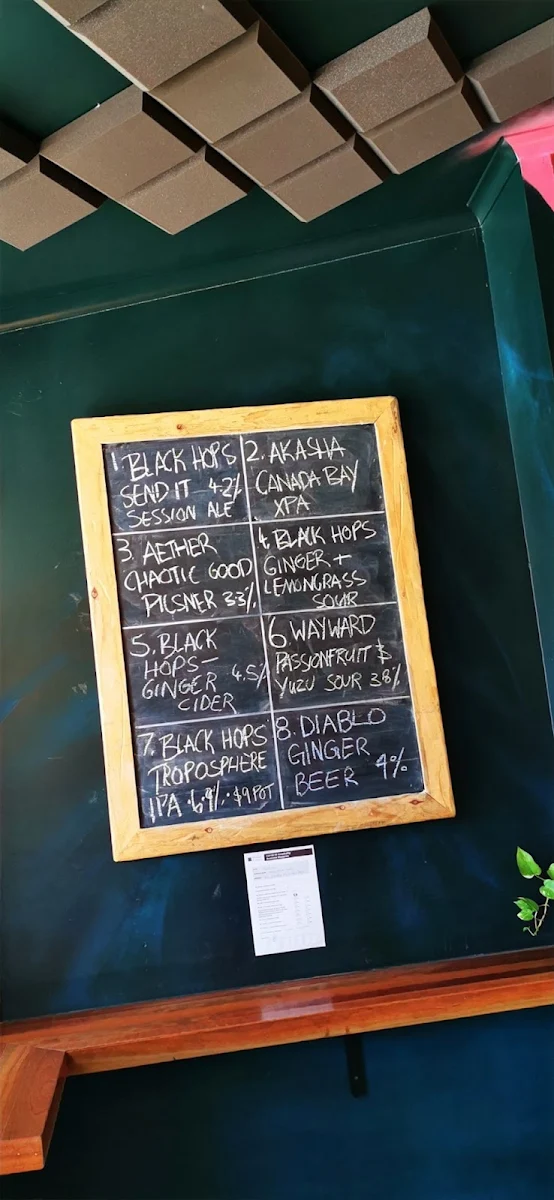 1 BLACK HOPS
SEND IT 4.2%
SESSION ALE
2. AKASHA
CANADA BAY
XPA
3. AETHER
CHAOTIC GOOD
PILSNER 3.3%
4. BLACK HOPS
GINGER +
LEMONGRASS
SOUR
5. BLACK
HOPS-
GINGER 4.5%
CIDER
6 WAYWARD
PASSIONFRUIT &
YUZU SOUR 3.8%
7. BLACK HOPS
TROPOSPHERE
IPA • 6.9% • $9 POT
8. DIABLO
GINGER
BEER 4%